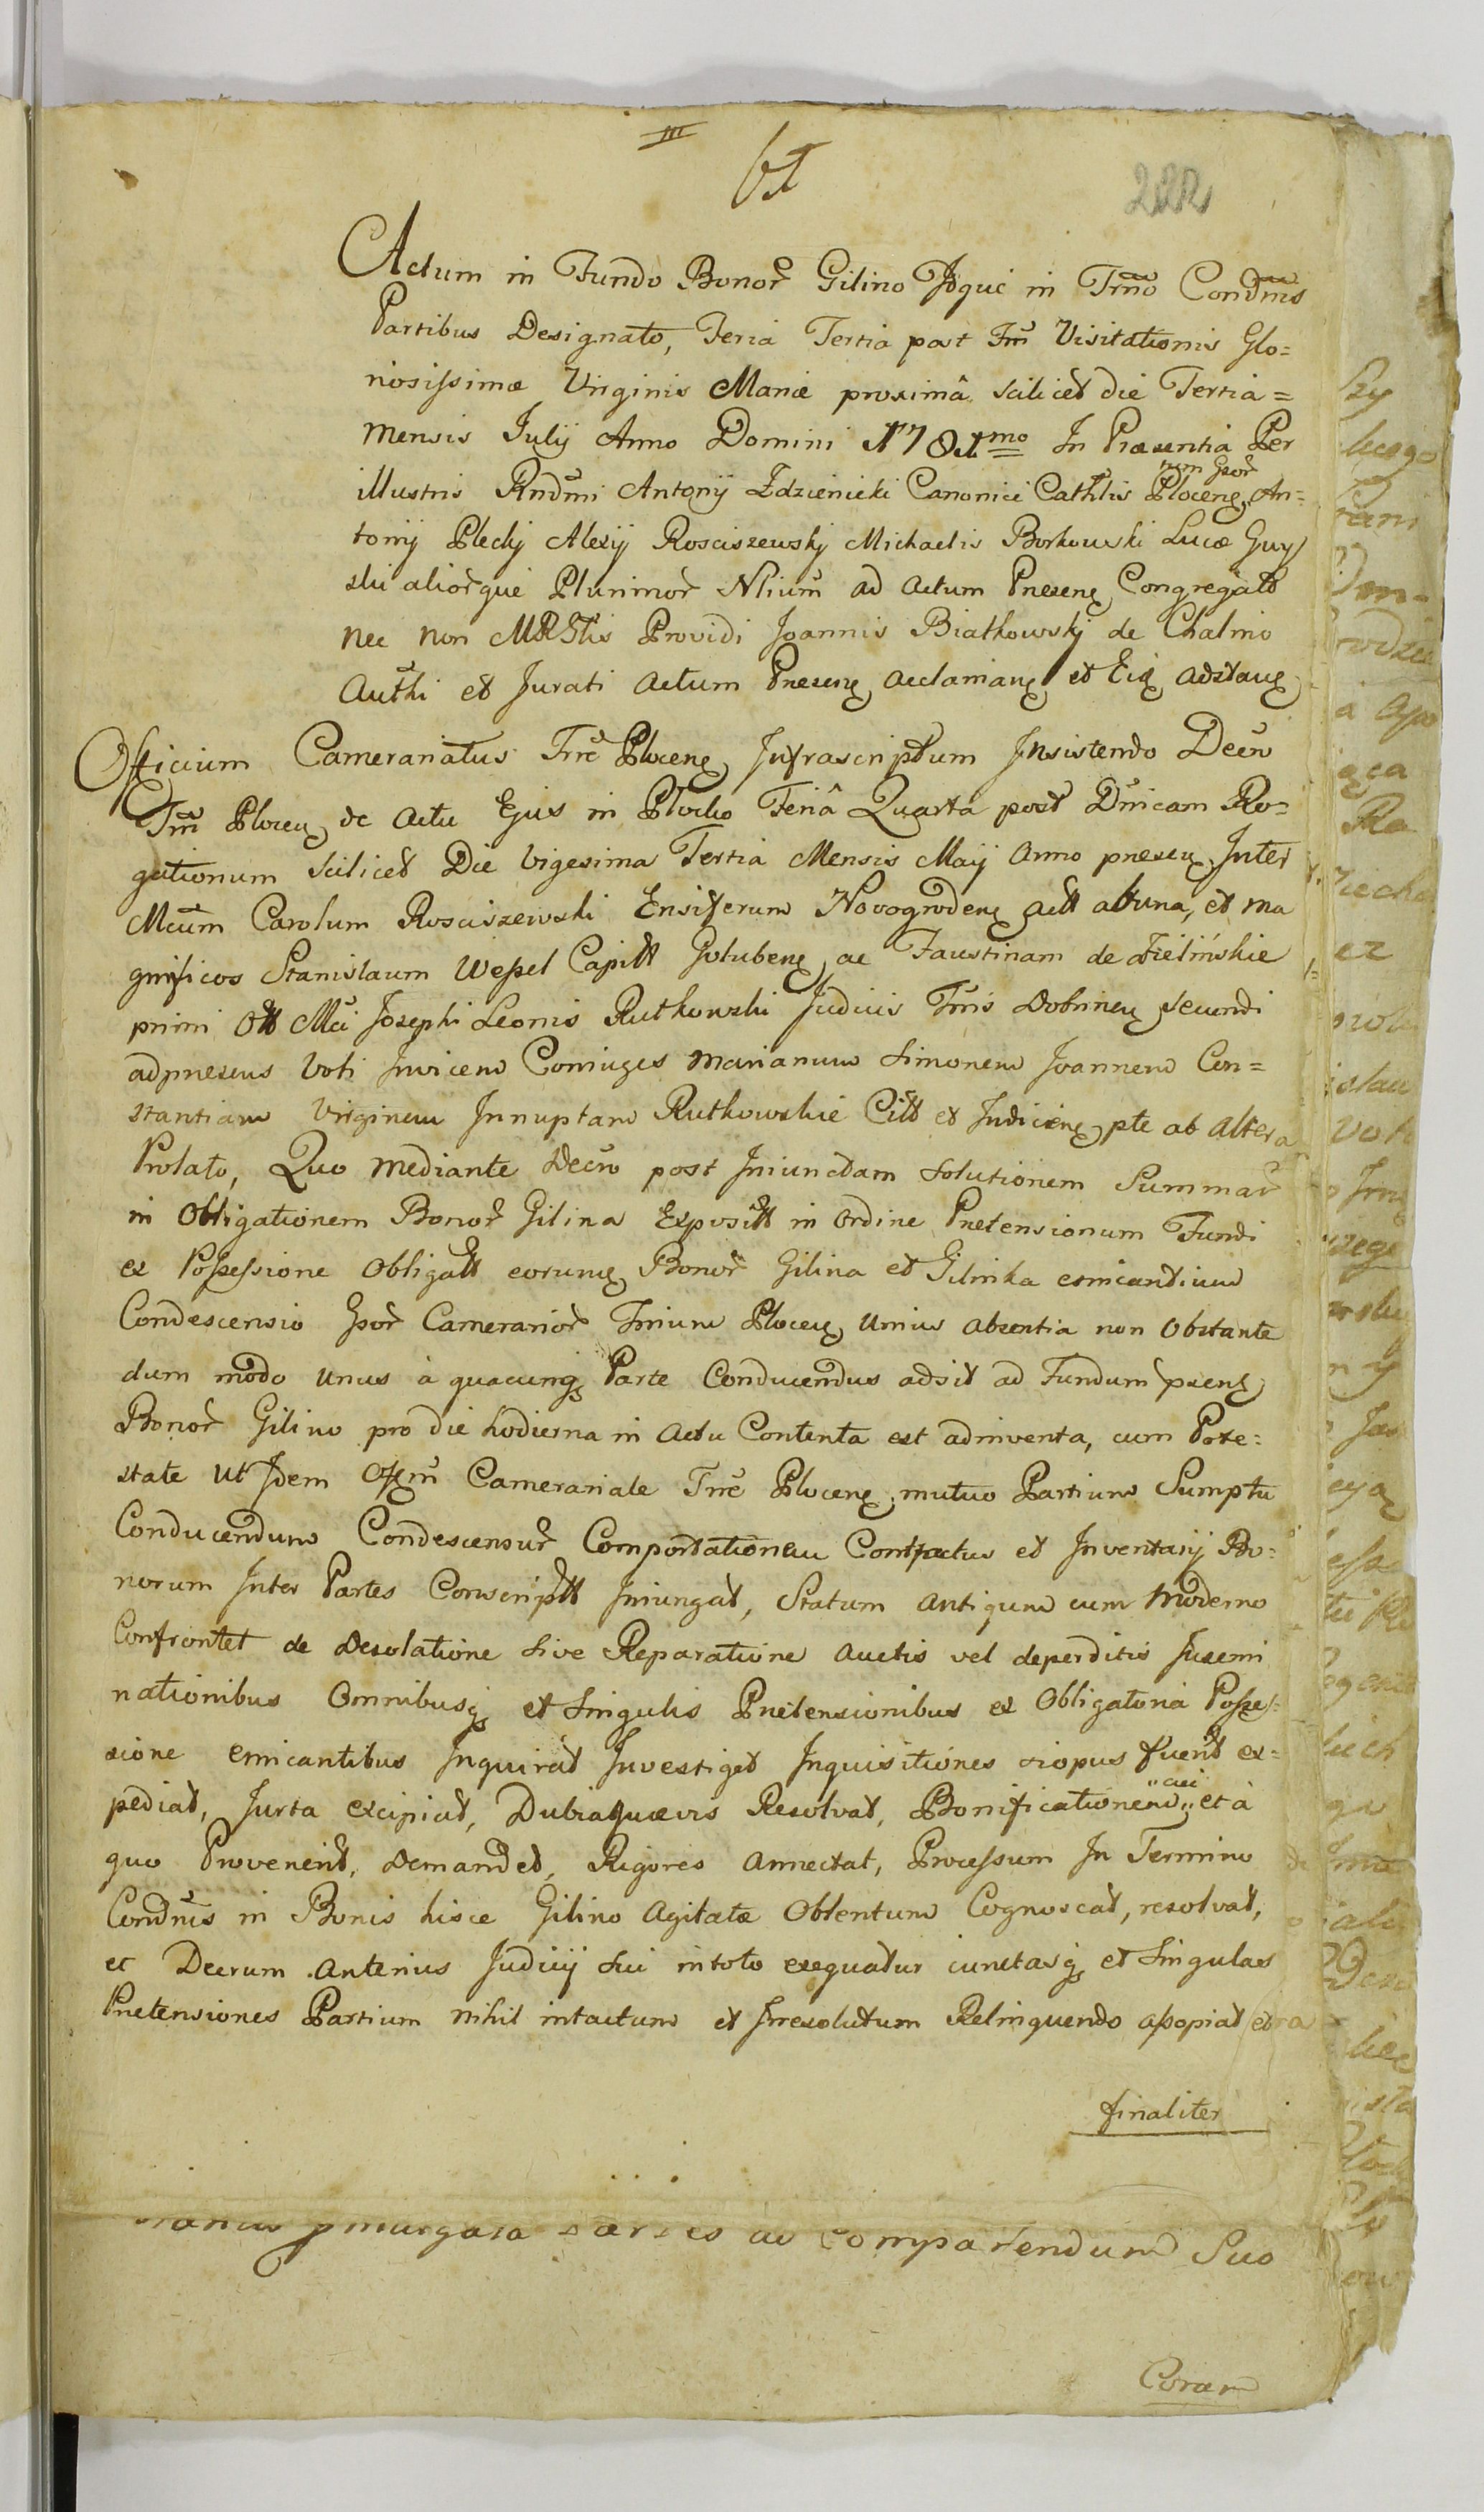 III
222
Actum in Fundo Bonor̃ Gilino Idque in Trm̃o Condñis
Partibus Designato, Feria Tertia post Fm̃ Visitationis Glo=
riosissimæ Virginis Mariæ proximâ scilicet die Tertia=
Mensis Julij Anno Domini 1781mo In Præsentia Per
illustris Rndm̃i Antonij Zdzienicki Canonici Cathlis Plocenę, An=
num Gsor̃
tonij Plecky Alexij Rosciszewsky Michaelis Borkowski Lucæ Guy
ski alior̃que Plurimor̃ Nlium̃ ad actum Præsenę Congregatt
nec non Providi Joannis Białkowsky de Chalino
Authi et Jurati actum Præsenę acclamanę et Eię adstanę
Officium Camerariatus Trrẽ Plocenę Infrascriptum Insistendo Decr̃o
Trrm̃ Plocenę de actu Ejus in Plocko Feriâ Quarta post Dñicam Ro=
gationum scilicet Die Vigesima Tertia Mensis Maij Anno præsenę Inter
Mcum̃ Carolum Rosciszewski Ensiferum Novogrodenę actt ab una, et ma
gnificos Stanislaum Wessel Capitt Golubenę ac Faustinam de Zielińskie
primi ott Mci Josephi Leonis Rutkowski Judicis Trrĩs Dobrinenę secundi
adpræsens Voti Invicem Coniuges Marianum Simonem Joannem Con=
stantiam Virginem Innuptam Rutkowskie Citt et Indicienę pte ab altera
Prolato, Quo mediante Decr̃o post Iniunctam solutionem Summar̃
in Obligationem Bonor̃ Gilina Expositt in ordine Prætensionum Fundi
ex Possessione Obligatt eorumę Bonor̃ Gilina et Gilinka emicantium
Condescensio Gsor̃ Camerarior̃ Trrium Plocenę unius absentia non obstante
dum modo unus à quacunqȝ Parte Conducendus adsit ad Fundum præsenę
Bonor̃ Gilino pro die hodierna in Actu Contenta est adinventa, cum Pote=
state ut Idem Offm̃ Camerariale Trrẽ Plocenę mutuo Partium Sumptu
Conducendum Condescensur̃ Comportationem Contractus et Inventarij Bo=
norum Inter Partes Conscriptt Iniungat, Statum antiquum cum moderno
Confrontet de Desolatione sive Reparatione auctis vel deperditis Insemi
nationibus Omnibusqȝ et Singulis Prætensionibus ex Obligatoria Posses=
sione emicantibus Inquirat Investiget Inquisitiones siopus fuerit ex=
pediat, Jurta excipiat, Dubiaquævis Resolvat, Bonificationem et à
cui
quo Provenerit, Demandet, Rigores annectat, Processum In Termino
Condñis in Bonis hisce Gilino Agitatæ Obtentum Cognoscat, resolvat,
et Decrum anterius Judicij sui intoto exequatur cunctasqȝ et Singulas
Prætensiones Partium nihil intactum et Irresolutum Relinquendo assopiat et
finaliter
Partes ad Comparendum Suo
Coram